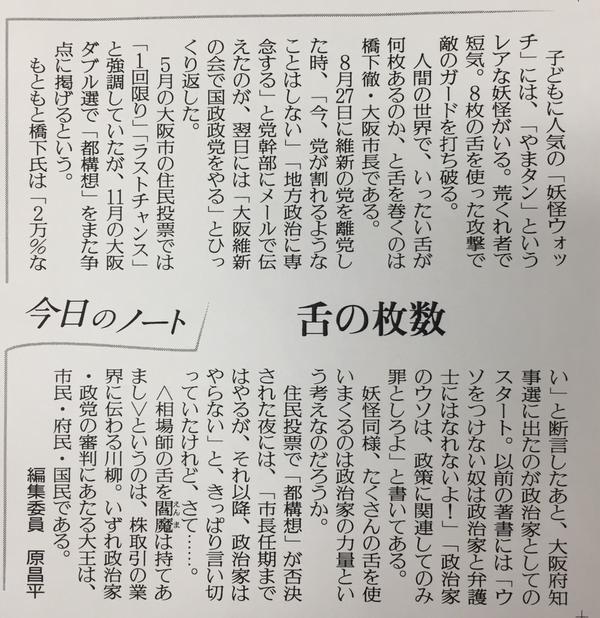 今日のノート
舌の枚数
子どもに人気の「妖怪ウォッ
チ」には、「やまタン」という
レアな妖怪がいる。荒くれ者で
短気。8枚の舌を使った攻撃で
敵のガードを打ち破る。
人間の世界で、いったい舌が
何枚あるのか、と舌を巻くのは
橋下徹・大阪市長である。
8月27日に維新の党を離党し
た時、「今、党が割れるような
ことはしない」「地方政治に専
念する」と党幹部にメールで伝
えたのが、翌日には「大阪維新
の会で国政政党をやる」とひっ
くり返した。
5月の大阪市の住民投票では
「1回限り」「ラストチャンス」
と強調していたが、11月の大阪
ダブル選で「都構想」をまた争
点に掲げるという。
もともと橋下氏は「2万%な
い」と断言したあと、大阪府知
事選に出たのが政治家としての
スタート。以前の著書には「ウ
ソをつけない奴は政治家と弁護
士にはなれないよ!」「政治家
のウソは、政策に関連してのみ
罪としろよ」と書いてある。
妖怪同様、たくさんの舌を使
いまくるのは政治家の力量とい
う考えなのだろうか。
住民投票で「都構想」が否決
された夜には、「市長任期まで
はやるが、それ以降、政治家は
やらない」と、きっぱり言い切
っていたけれど、さて……。
〈相場師の舌を閻魔えんまは持てあ
まし〉というのは、株取引の業
界に伝わる川柳。いずれ政治家
・政党の審判にあたる大王は、
市民・府民・国民である。
編集委員 原昌平